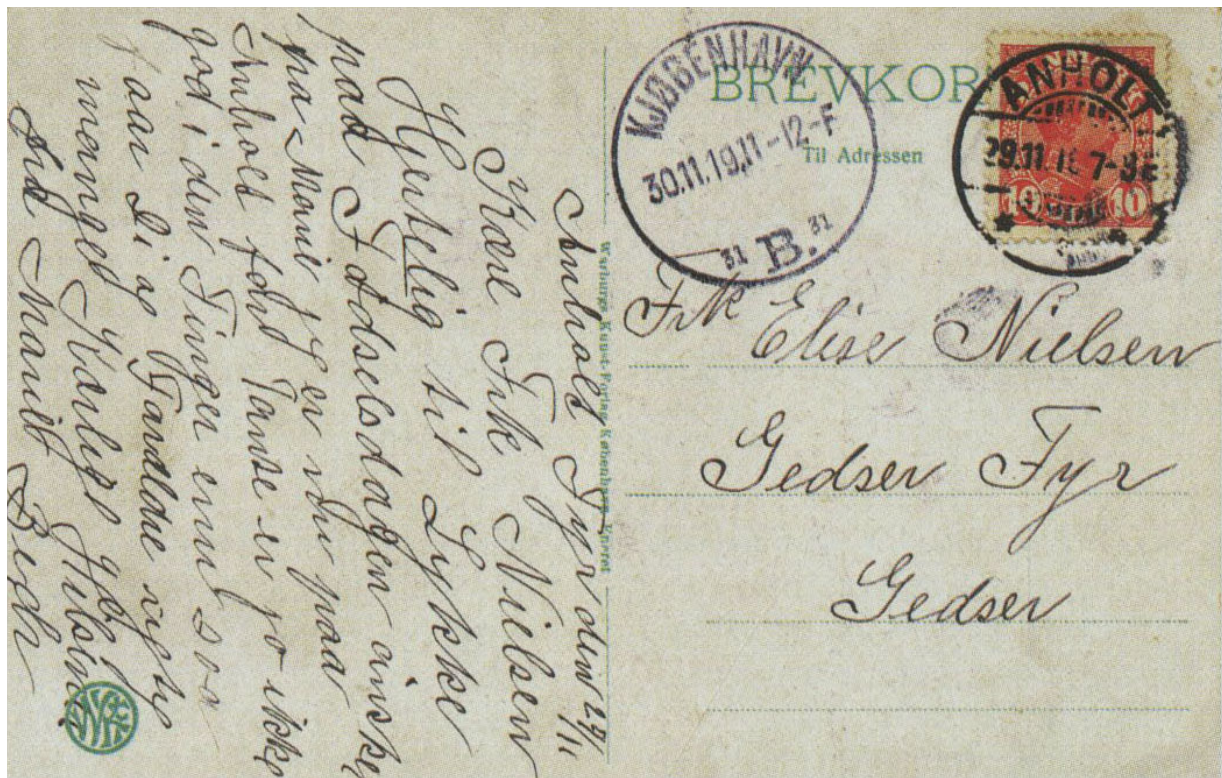 BREVKOR
Til Adressen
KJØBENHAVN
30.11.19.11-12-F
31 B. 31
ANHOLT
29.11.1 7-3 E
10 10
Frk Elise Nielsen
Gedser Fyr
Gedser
Warburgs Kunst-Forlag København Eneret
Anholt Fyr den 29/11
Kære Frk Nielsen
Hjertelig til Lykke
paa Fødselsdagen ønskes
fra Marie jeg er nu paa
Anholt ford Tante er jo ikke
god i den Finger enu saa
faar Di ig
menget Kærlige Hilsine
fra